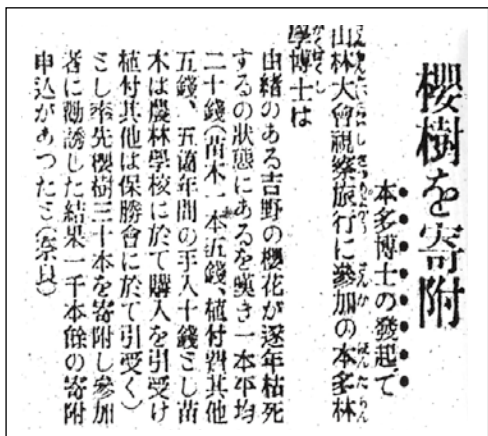 櫻樹を寄附
本多博士の發起で
山林大會視察旅行に參加の本多林
學博士は
由緒のある吉野の櫻花が逐年枯死
するの狀態にあるを嘆き一本平均
二十錢(苗木一本五錢、植付費其他
五錢、五箇年間の手入十錢とし苗
木は農林學校に於て購入を引受け
植付其他は保勝會に於て引受く)
とし率先櫻樹三十本を寄附し參加
者に勸誘した結果一千本餘の寄附
申込があつたと(奈良)